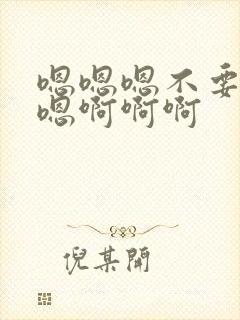 嗯嗯嗯不要
嗯啊啊啊
倪某開